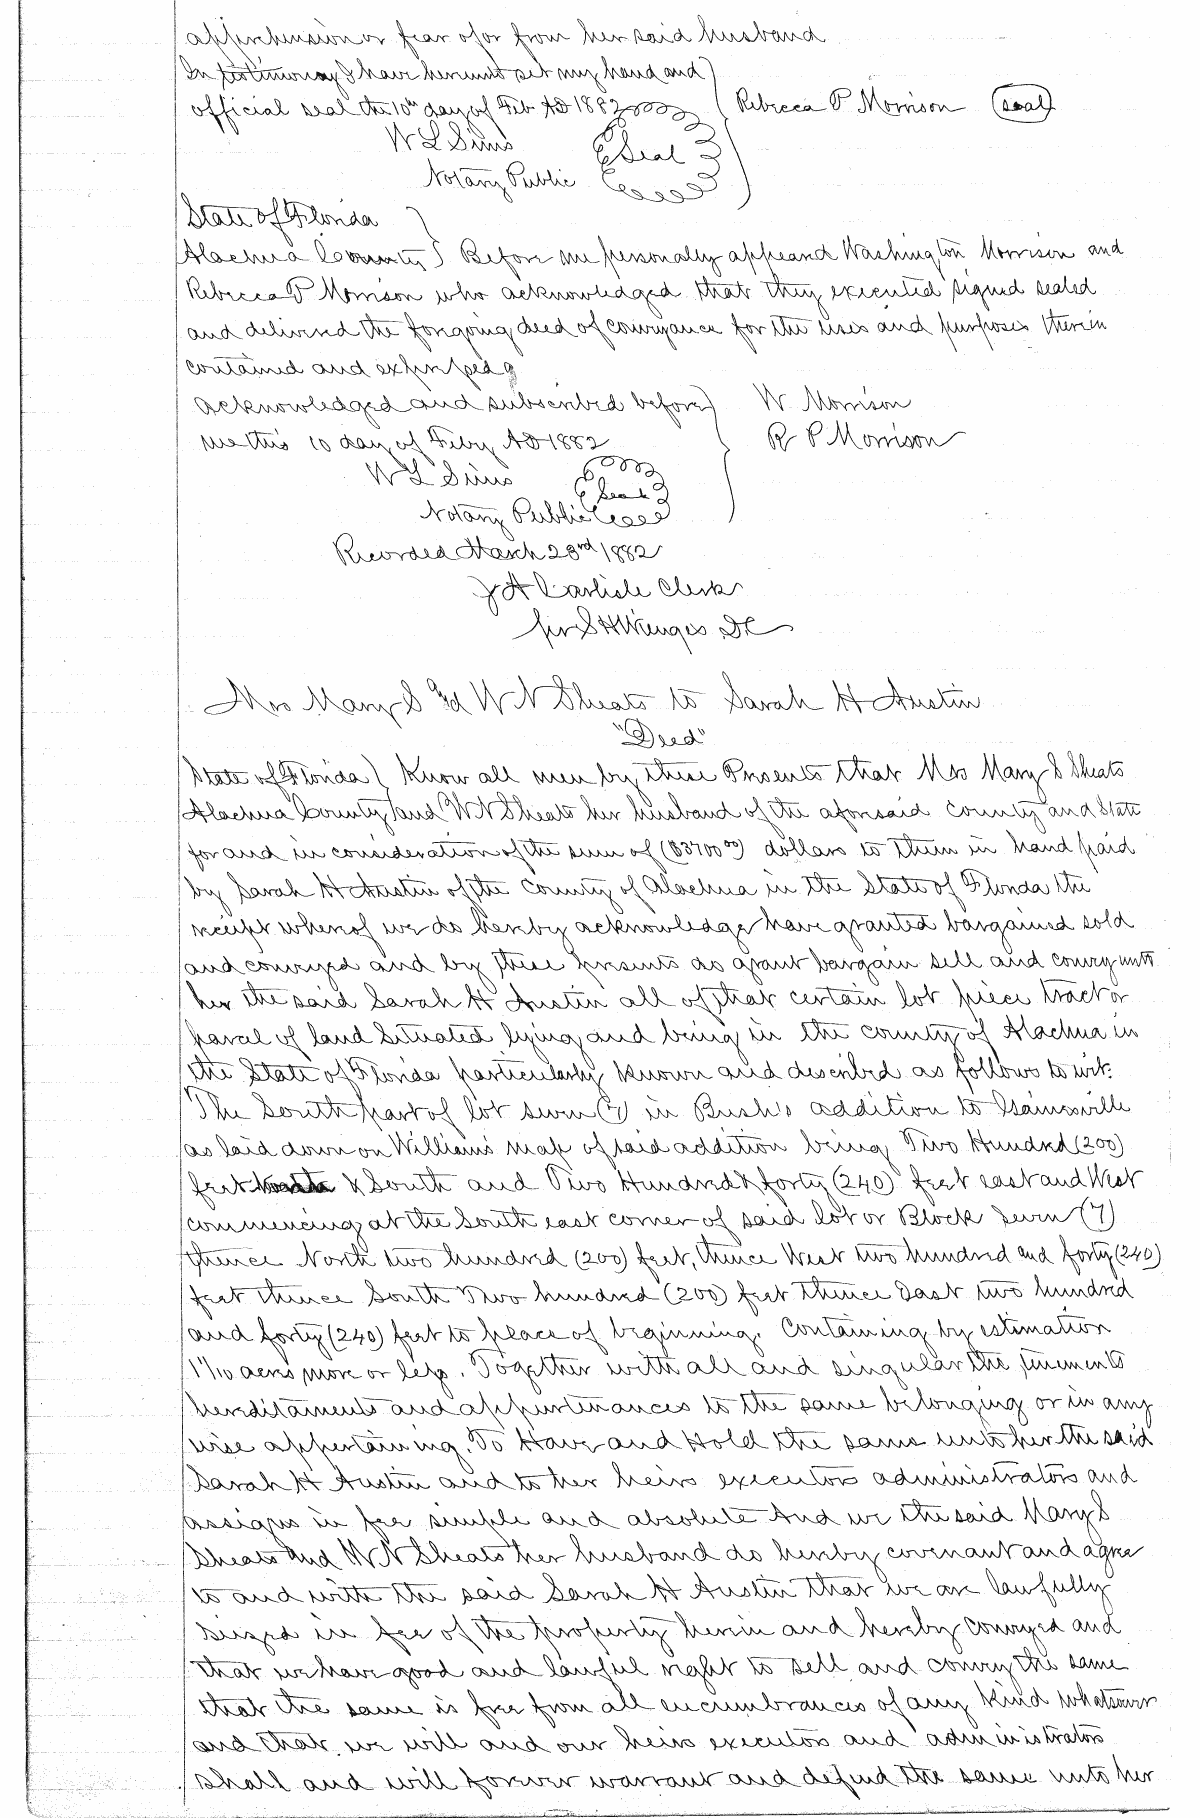 apprehension or fear of or from her said husband
In testimony I have hereunto set my hand and
official seal the 10th day of Feb AD 1882 Rebecca P Morrison (seal)
W L Sims Seal
Notary Public
State of Florida
Alachua County Before me personally appeared Washington Morrison and
Rebecca P Morrison who acknowledged that they executed signed sealed
and delivered the foregoing deed of conveyance for the uses and purposes therein
contained and expressed
acknowledged and subscribed before W. Morrison
me this 10 day of Feby AD 1882 R P Morrison
W L Sims Seal
Notary Public
Recorded March 23rd 1882
J A Carlisle Clerk
per S H Wienges D C
Mrs Mary S and W N Sheats to Sarah H Austin
"Deed"
State of Florida ( Know all men by these Presents that Mrs Mary S Sheats
Alachua County and W N Sheats her husband of the aforesaid County and State
for and in consideration of the sum of ($3700 00) dollars to them in hand paid
by Sarah H Austin of the County of Alachua in the State of Florida the
receipt whereof we do hereby acknowledge have granted bargained sold
and conveyed and by these presents do grant bargain sell and convey unto
her the said Sarah H Austin all of that certain lot piece tract or
parcel of land Situated lying and being in the county of Alachua in
the State of Florida particularly known and described as follows to wit.
The South part of lot seven (7) in Bush's addition to Gainesville
as laid down on Williams map of said addition being Two Hundred (200)
feet & South and Two Hundred & forty (240) feet east and West
commencing at the South east corner of said lot or Block Seven (7)
thence North two hundred (200) feet, thence West two hundred and forty (240)
feet thence South Two hundred (200) feet thence East two hundred
and forty (240) feet to place of beginning. Containing by estimation
1 1/10 acres more or less. Together with all and singular the tenements
hereditaments and appurtenances to the same belonging or in any
wise appertaining. To Have and Hold the same unto her the said
Sarah H Austin and to her heirs executors administrators and
assigns in fee simple and absolute And we the said Mary S
Sheats and W N Sheats her husband do hereby covenant and agree
to and with the said Sarah H Austin that we are lawfully
seized in fee of the property herein and hereby conveyed and
that we have good and lawful right to sell and convey the same
that the same is free from all encumbrances of any kind whatsoever
and that we will and our heirs executors and administrators
shall and will forever warrant and defend the same unto her